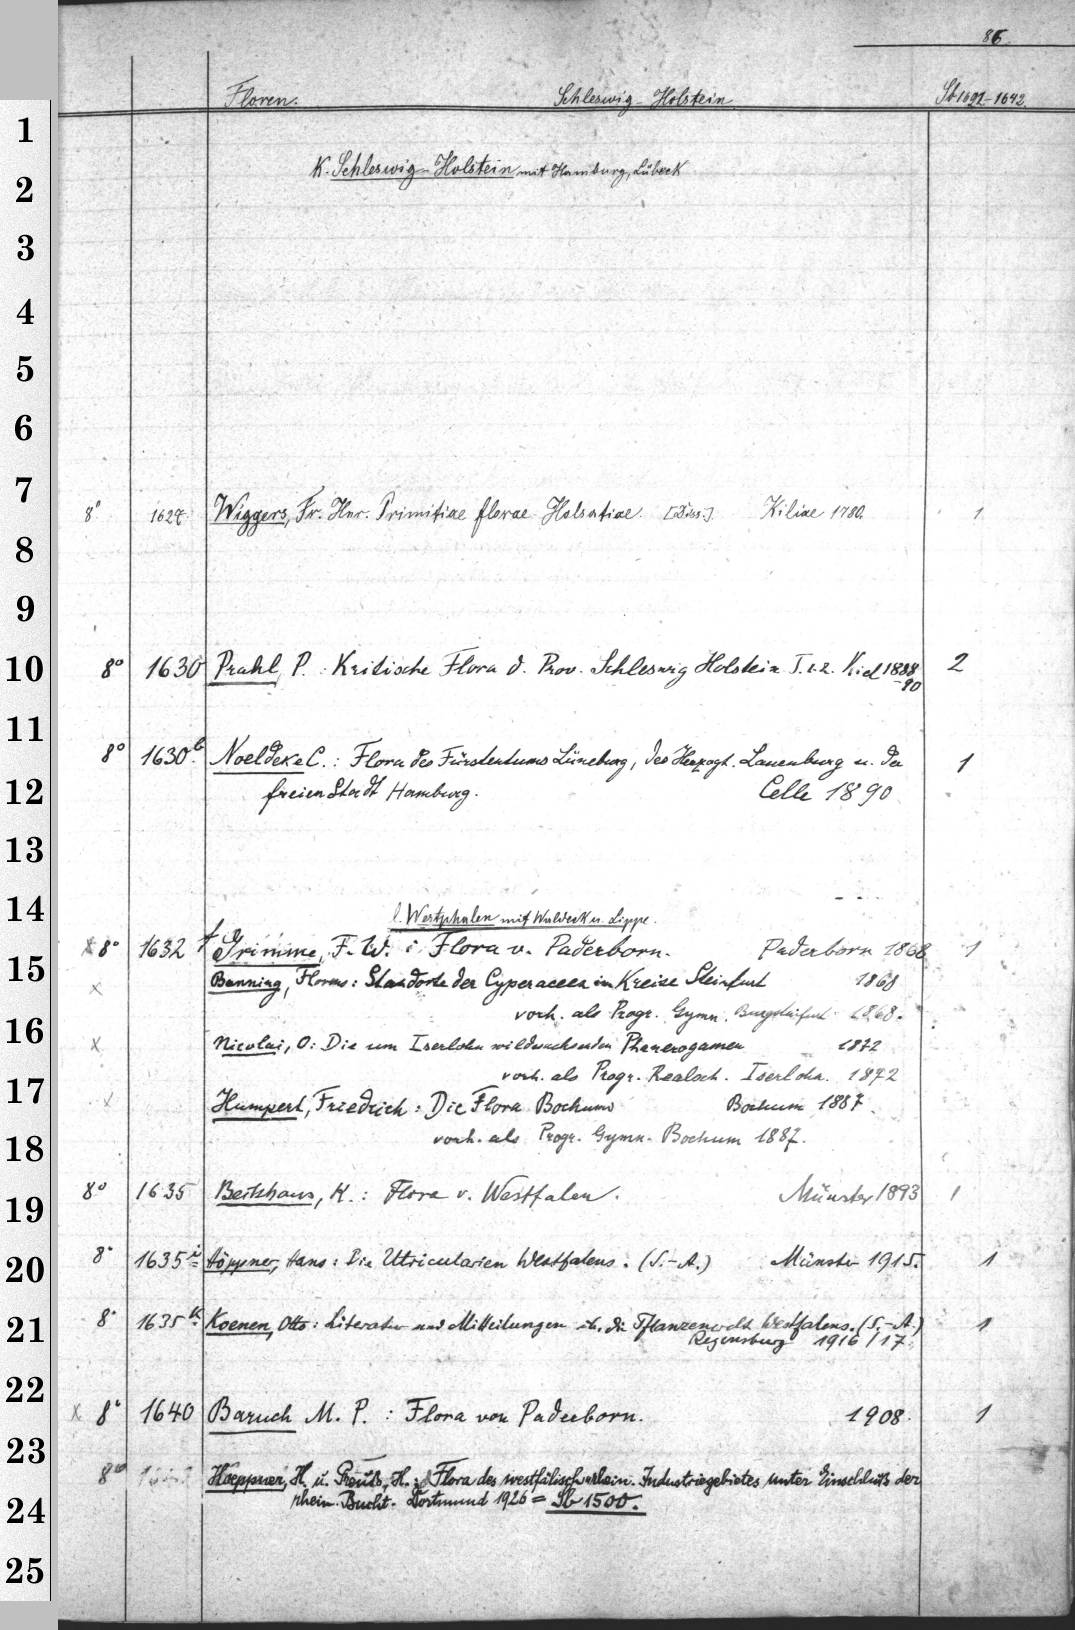 86.
Floren. Schleswig-Holstein Sb 1621-1642.
K. Schleswig-Holstein mit Hamburg, Lübeck
8° 1627 Wiggers, Fr. Hnr. Primitiae florae Holsatiae. [Diss.] Kiliae 1780. 1
8° 1630 Prahl P. : Kritische Flora d. Prov. Schleswig Holstein I. u. 2. Kiel 1888 2
-90
8° 1630b Noeldeke C. : Flora des Fürstentums Lüneburg, des Herzogt. Lauenburg u. der 1
freien Stadt Hamburg. Celle 1890
l. Westphalen mit Waldeck u. Lippe.
x 8° 1632 † Grimme, F. W. : Flora v. Paderborn. Paderborn 1868 1
x Banning, Florens : Standorte der Cyperaceen im Kreise Steinfurt 1868
vorh. als Progr. Gymn. Burgsteinfurt 1868.
x Nicolai, O: Die um Iserlohn wildwachsenden Phanerogamen 1872
vorh. als Progr. Realsch. Iserlohn. 1872
x Humpert, Friedrich : Die Flora Bochums Bochum 1887.
vorh. als Progr. Gymn. Bochum 1887.
8° 1635 Beckhaus, K. : Flora v. Westfalen. Münster 1893 1
8° 1635i Höppner, Hans : Die Utricularien Westfalens. (S.-A.) Münster 1915. 1
8° 1635k Koenen, Otto : Literatur und Mitteilungen üb. die Pflanzenwelt Westfalens. (S.-A.) 1
Regensburg 1916/17.
x 8° 1640 Baruch M. P. : Flora von Paderborn. 1908. 1
8° Hoeppner, H. u. Preuß, H. : Flora des westfälisch-rhein. Industriegebietes unter Einschluß der
rhein. Bucht. Dortmund 1926 = Sb 1500.
1
2
3
4
5
6
7
8
9
10
11
12
13
14
15
16
17
18
19
20
21
22
23
24
25